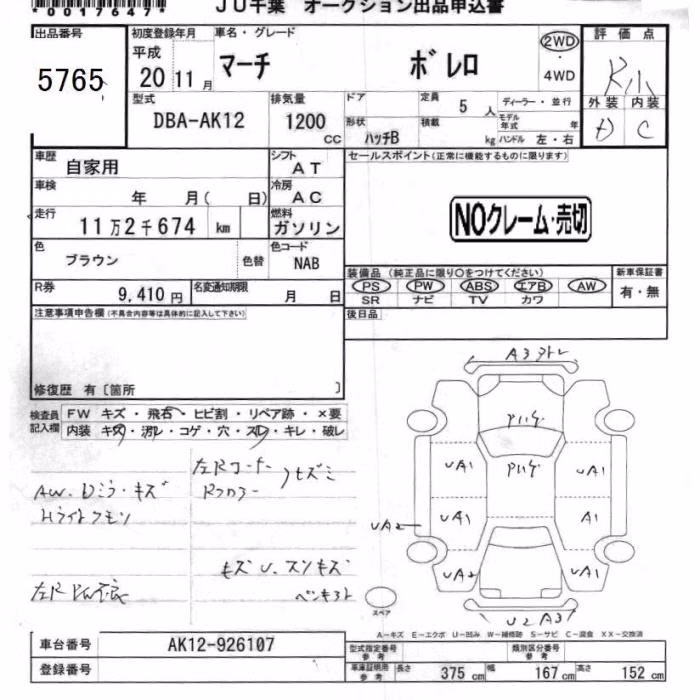 *0017647*
JU千葉 オークション出品申込書
出品番号 初度登録年月 車名・グレード 評価点
5765 平成 20 11月 マーチ ボレロ 2WD・4WD R小
型式 排気量 ドア 定員 5人 ディーラー・並行 外装 内装
DBA-AK12 1200CC 形状 ハッチB 積載 kg モデル年式 年 ハンドル 左・右 D C
車歴 自家用 シフト AT セールスポイント(正常に機能するものに限ります)
車検 年 月( 日) 冷房 AC
走行 11万2千674 km 燃料 ガソリン NOクレーム・売切
色 ブラウン 色替 色コード NAB
装備品 (純正品に限り○をつけてください) 新車保証書
R券 9,410円 名変通知期限 月 日 PS PW ABS エアB AW 有・無
SR ナビ TV カワ
注意事項申告欄(不具合内容等は具体的に記入して下さい) 後日品
修復歴 有〔箇所 〕
検査員記入欄 FW キズ・飛石・ヒビ割・リペア跡・×要
内装 キズ・汚レ・コゲ・穴・スレ・キレ・破レ
A3 ヨトレ
UA1 UA1
UA1 A1
UA2
UA2 UA1
U2 A3
左Rコーナー
Rフロアー
AW、Dミラーキズ
Hライトクモリ
キズ U、スリキズ
スペア
A-キズ E-エクボ U-凹み W-補修跡 S-サビ C-腐食 XX-交換済
車台番号 AK12-926107 型式指定番号 参考 類別区分番号 参考
登録番号 車庫証明用 参考 長さ 375cm 幅 167cm 高さ 152cm